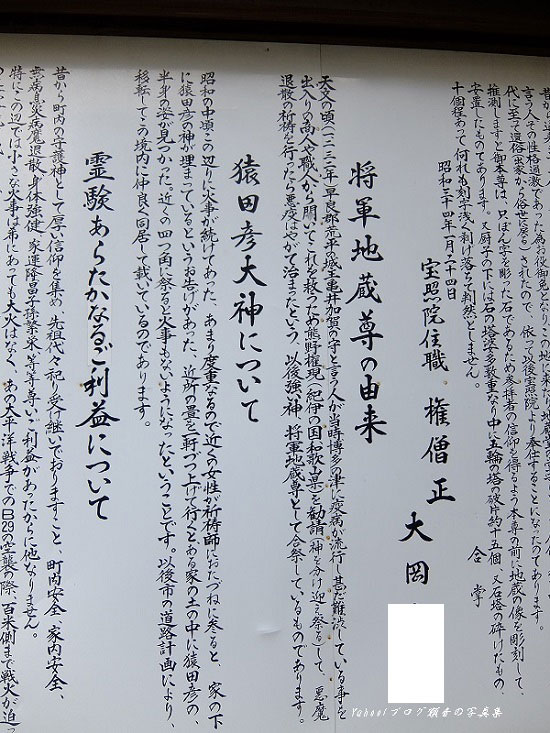 言う人その性格過激であった為お役御免となりこの地に来り
代に至って還俗(出家から俗世に戻る)されたので、依って以後宝照院より奉仕することになったのであります。
推測しますと御本尊は、只ぼん字を彫った石であるため参拝者の信仰を得るよう本尊の前に地蔵の像を彫刻して、
安置したものであります。又厨子の下には石の塔法多数重なり中に五輪の塔の破片約十五個 又石塔の砕けたもの、
十個程あって何れも刻字浅く剥げ落ちて判然としません。
昭和三十四年一月二十四日 合掌
宝照院住職 権僧正 大岡
将軍地蔵尊の由来
天文の頃(一二三二年)早良郡荒平の城主亀井加賀の守と言う人が当時博多の津に疫病が流行し甚だ難渋している事を
出入りの商人や職人から聞いてこれを救うため熊野権現(紀伊の国和歌山県)を勧請(神を分け迎え祭る)して、悪魔
退散の祈祷を行ったら悪疫はやがて治まったという。以後強い神、将軍地蔵尊として合祭しているものであります。
猿田彦大神について
昭和の中頃この辺りに火事が続けてあった、あまり度重なるので近くの女性が祈祷師におたづねに参ると 家の下
に猿田彦の神が埋まっているというお告げがあった、近所の畳を一軒づつ上げて行くとある家の土の中に猿田彦の、
半身の姿が見つかった。近くの四つ角に祭ると火事もないようになったということです。以後市の道路計画により、
移転してこの境内に仲良く同居して戴いているのであります。
霊験あらたかなるご利益について
昔から町内の守護神として厚い信仰を集め、先祖代々祀り受け継いでおりますこと、町内安全、家内安全、
無病息災、悪魔退散、身体強健、家運隆昌、子孫繁栄、等々尊いご利益があったからに他なりません。
特にこの辺では小さな火事は希にあっても大火はなく、あの太平洋戦争でのB29の空襲の際、百米側まで戦火が迫っ
Yahoo!ブログ 観音の写真集